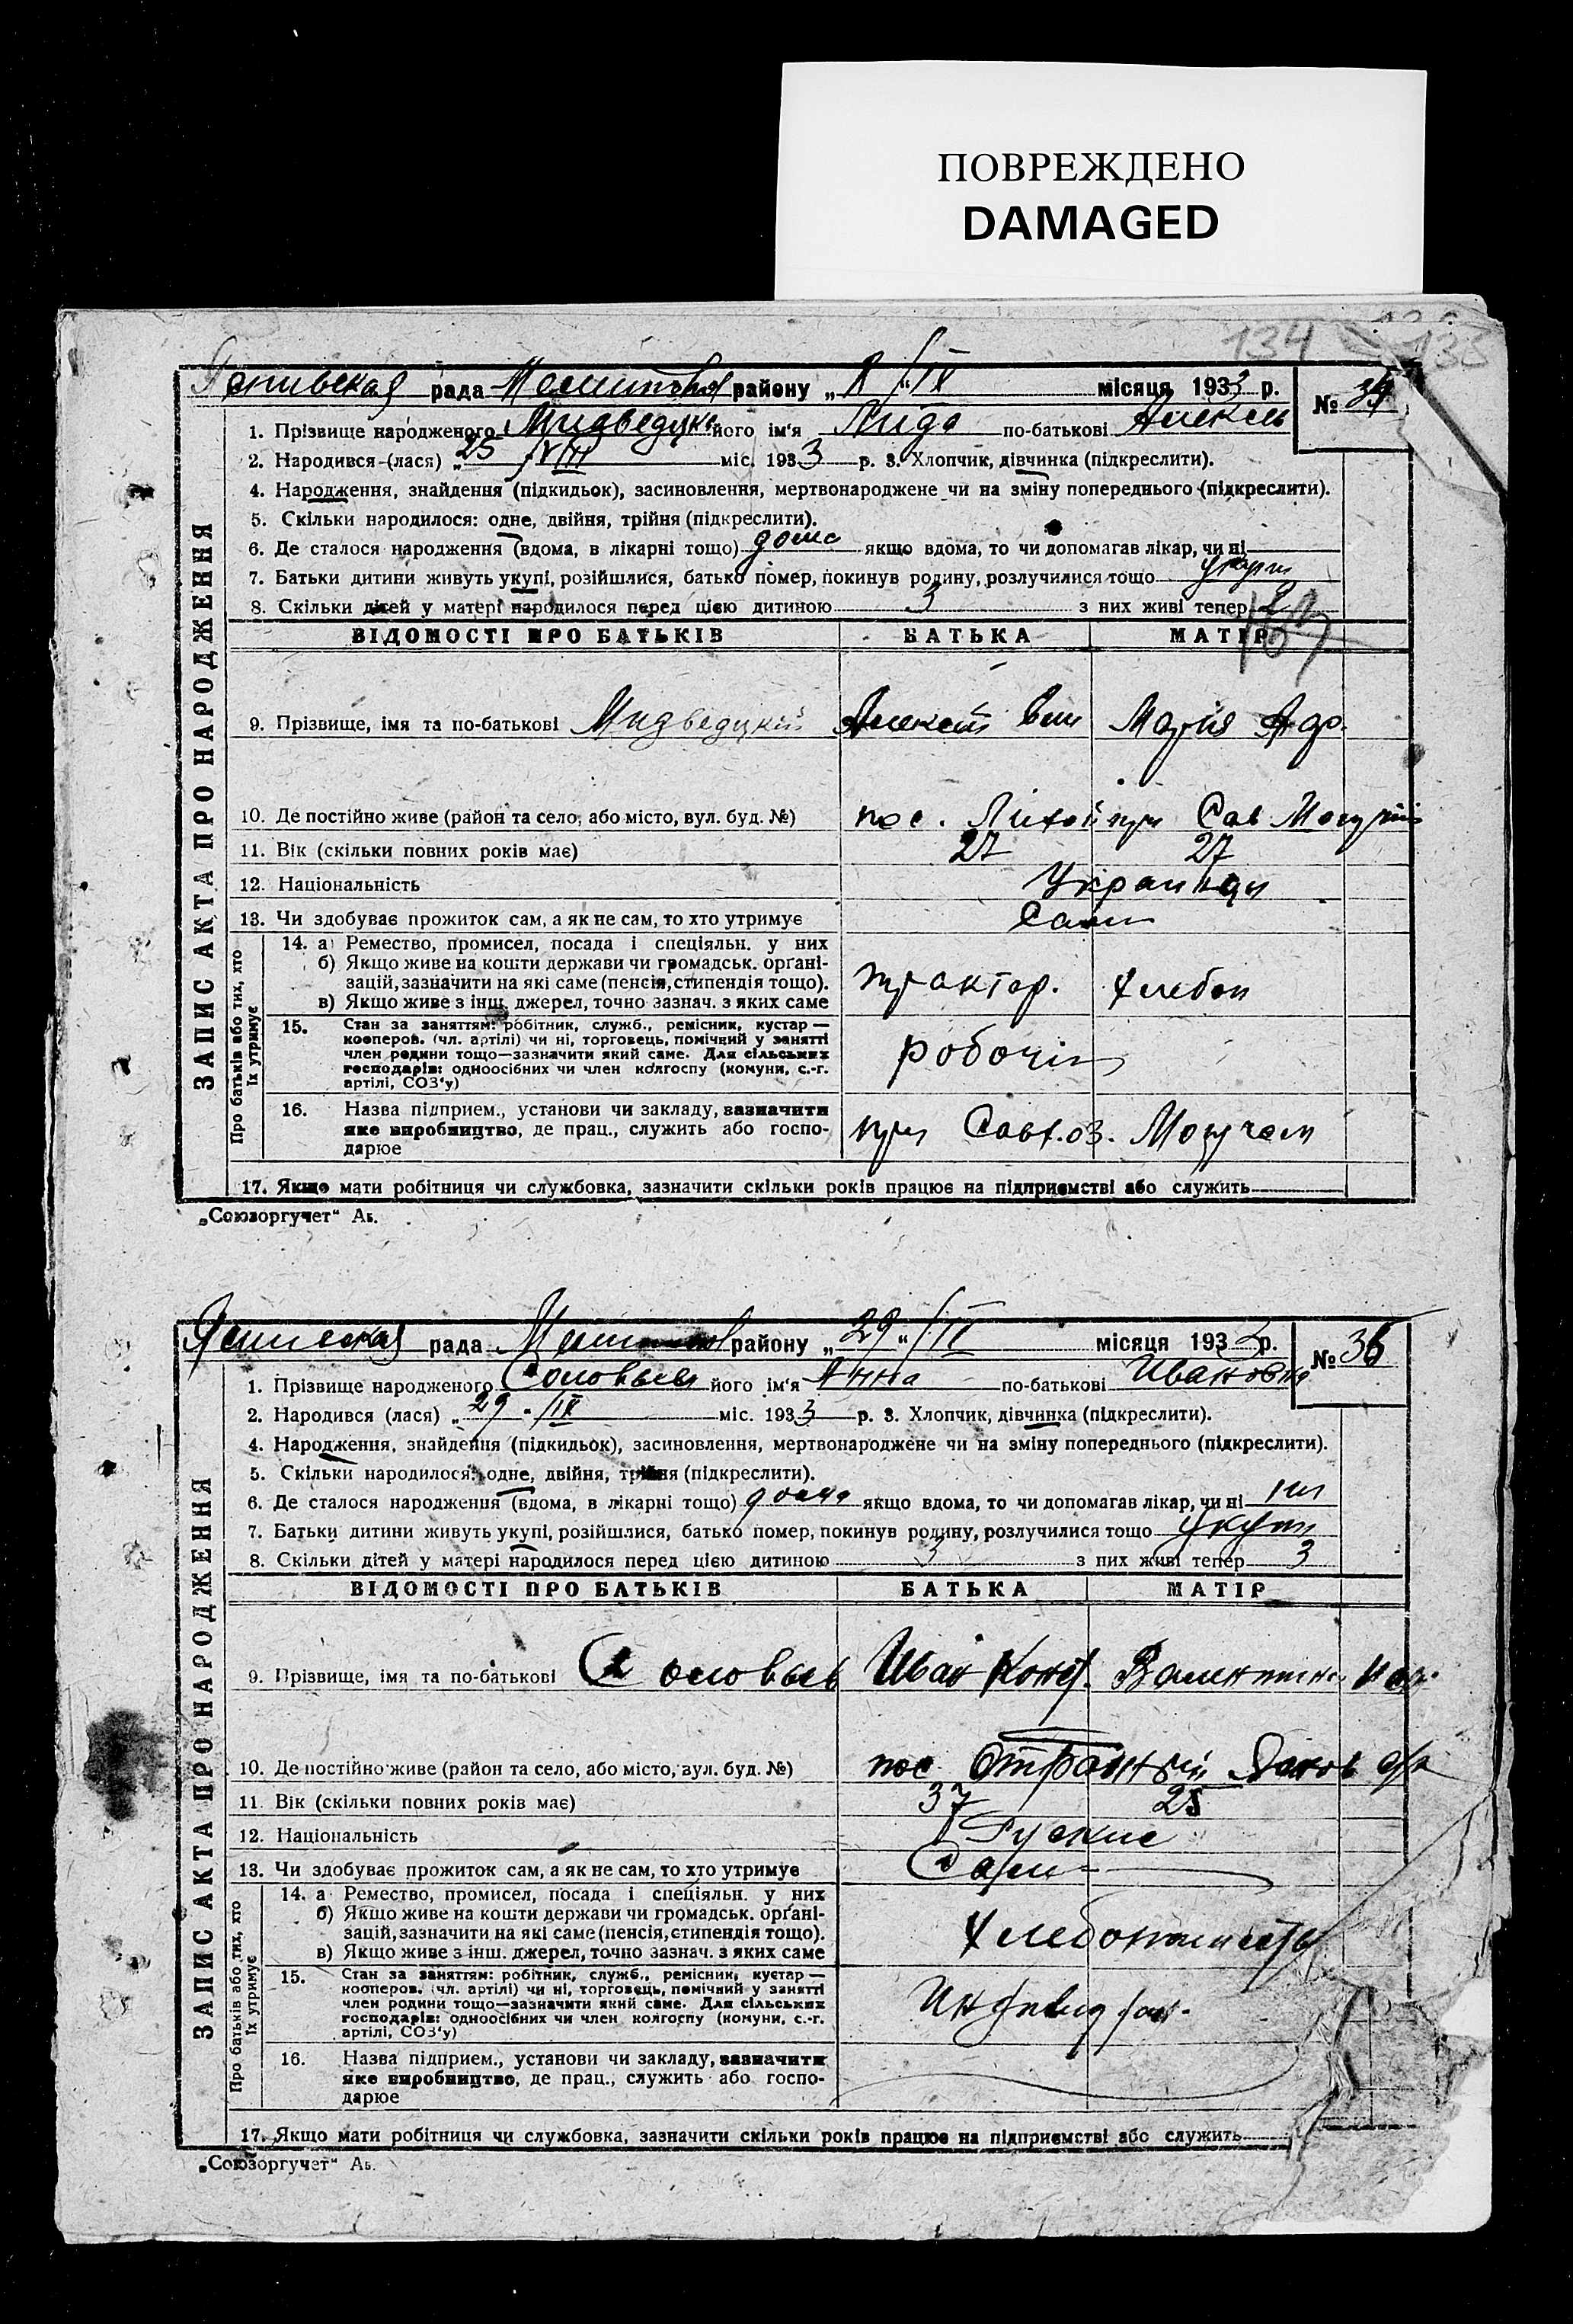 ПОВРЕЖДЕНО
DAMAGED
134 133
рада району „ “ IX місяця 1933 р. № 34
1. Прізвище народженого його ім'я Лида по-батькові Алексь
2. Народився (лася) „25 /VIII міс. 1933 р. 3. Хлопчик, дівчинка (підкреслити).
4. Народження, знайдення (підкидьок), засиновлення, мертвонароджене чи на зміну попереднього (підкреслити).
5. Скільки народилося: одне, двійня, трійня (підкреслити).
6. Де сталося народження (вдома, в лікарні тощо) дома якщо вдома, то чи допомагав лікар, чи ні
7. Батьки дитини живуть укупі, розійшлися, батько помер, покинув родину, розлучилися тощо
8. Скільки дітей у матері народилося перед цією дитиною 3 з них живі тепер 2
ВІДОМОСТІ ПРО БАТЬКІВ БАТЬКА МАТІР
9. Прізвище, імя та по-батькові Мидведцкий Алексей Мария
10. Де постійно живе (район та село, або місто, вул. буд. №) пос. при Сав
11. Вік (скільки повних років має) 27 27
12. Національність Украинци
13. Чи здобуває прожиток сам, а як не сам, то хто утримує Сами
14. а) Ремество, промисел, посада і спеціяльн. у них
б) Якщо живе на кошти держави чи громадськ. орґані-
зацій, зазначити на які саме (пенсія, стипендія тощо).
в) Якщо живе з інш. джерел, точно зазнач. з яких саме
трактор. хлебоп
15. Стан за заняттям: робітник, служб., ремісник, кустар —
кооперов. (чл. артілі) чи ні, торговець, помічний у занятті
член родини тощо—зазначити який саме. Для сільських
господарів: одноосібних чи член колгоспу (комуни, с.-г.
артілі, СОЗ'у)
робочій
16. Назва підприєм., установи чи закладу, зазначити
яке виробництво, де прац., служить або госпо-
дарює
при Савх.оз.
17. Якщо мати робітниця чи службовка, зазначити скільки років працює на підприємстві або служить
ЗАПИС АКТА ПРО НАРОДЖЕННЯ
Про батьків або тих, хто
їх утримує
„Союзоргучет“ Ав.
рада району „29“ /IX місяця 1933 р. № 36
1. Прізвище народженого Соловьев його ім'я Анна по-батькові Ивановна
2. Народився (лася) „29 “ /IX міс. 1933 р. 3. Хлопчик, дівчинка (підкреслити).
4. Народження, знайдення (підкидьок), засиновлення, мертвонароджене чи на зміну попереднього (підкреслити).
5. Скільки народилося: одне, двійня, трійня (підкреслити).
6. Де сталося народження (вдома, в лікарні тощо) дома якщо вдома, то чи допомагав лікар, чи ні
7. Батьки дитини живуть укупі, розійшлися, батько помер, покинув родину, розлучилися тощо укупи
8. Скільки дітей у матері народилося перед цією дитиною 3 з них живі тепер 3
ВІДОМОСТІ ПРО БАТЬКІВ БАТЬКА МАТІР
9. Прізвище, імя та по-батькові Соловьев Иван Конст. Валентина
10. Де постійно живе (район та село, або місто, вул. буд. №) пос. Отрадный
11. Вік (скільки повних років має) 37 25
12. Національність Руские
13. Чи здобуває прожиток сам, а як не сам, то хто утримує Сами
14. а Ремество, промисел, посада і спеціяльн. у них
б) Якщо живе на кошти держави чи громадськ. орґані-
зацій, зазначити на які саме (пенсія, стипендія тощо).
в) Якщо живе з інш. джерел, точно зазнач. з яких саме
15. Стан за заняттям: робітник, служб., ремісник, кустар —
кооперов. (чл. артілі) чи ні, торговець, помічний у занятті
член родини тощо—зазначити який саме. Для сільських
господарів: одноосібних чи член колгоспу (комуни, с.-г.
артілі, СОЗ'у)
16. Назва підприєм., установи чи закладу, зазначити
яке виробництво, де прац., служить або госпо-
дарює
17. Якщо мати робітниця чи службовка, зазначити скільки років працює на підприємстві або служить
ЗАПИС АКТА ПРО НАРОДЖЕННЯ
Про батьків або тих, хто
їх утримує
„Союзоргучет“ Ав.